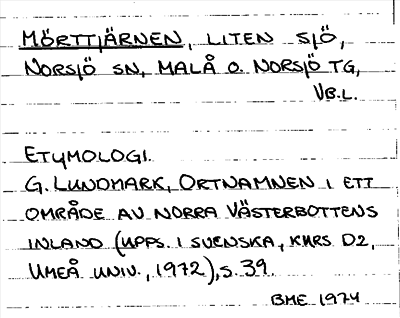 MÖRTTJÄRNEN, LITEN SJÖ,
NORSJÖ SN, MALÅ O. NORSJÖ TG,
VB.L.
ETYMOLOGI.
G. LUNDMARK, ORTNAMNEN I ETT
OMRÅDE AV NORRA VÄSTERBOTTENS
INLAND (UPPS. I SVENSKA, KURS D2,
UMEÅ UNIV., 1972), S. 39.
BME 1974